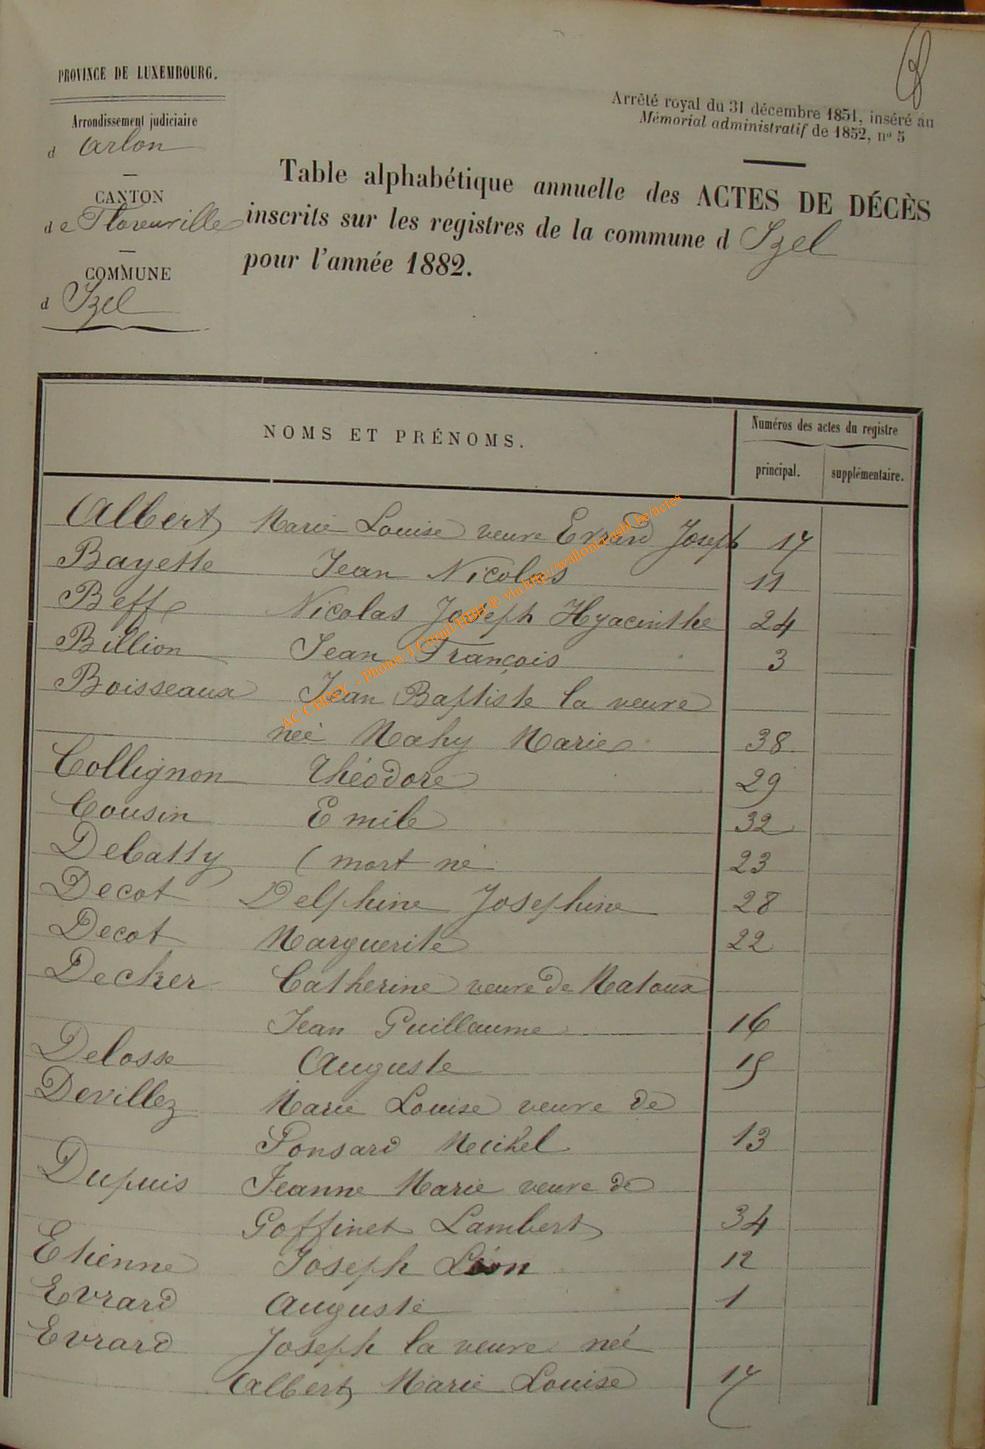 PROVINCE DE LUXEMBOURG.
Arrondissement judiciaire
d Arlon
CANTON
de Florenville
COMMUNE
d Izel
Arrêté royal du 31 décembre 1851, inséré au
Mémorial administratif de 1852, nº 5
Table alphabétique annuelle des ACTES DE DÉCÈS
inscrits sur les registres de la commune d Izel
pour l'année 1882.
NOMS ET PRÉNOMS.
Numéros des actes du registre
principal. supplémentaire.
Albert Marie Louise veuve Evrard Joseph 17
Bayette Jean Nicolas 11
Beff Nicolas Joseph Hyacinthe 24
Billion Jean François 3
Boisseaux Jean Baptiste la veuve
neé Mahy Marie 38
Collignon Théodore 29
Cousin Emile 32
Debatty (mort né 23
Decot Delphine Josephine 28
Decot Marguerite 22
Decker Catherine veuve de Matoux
Jean Guillaume 16
Delosse Auguste 15
Devillez Marie Louise veuve de
Ponsard Michel 13
Dupuis Jeanne Marie veuve de
Goffinet Lambert 34
Etienne Joseph Léon 12
Evrard Auguste 1
Evrard Joseph la veuve neé
Albert Marie Louise 17